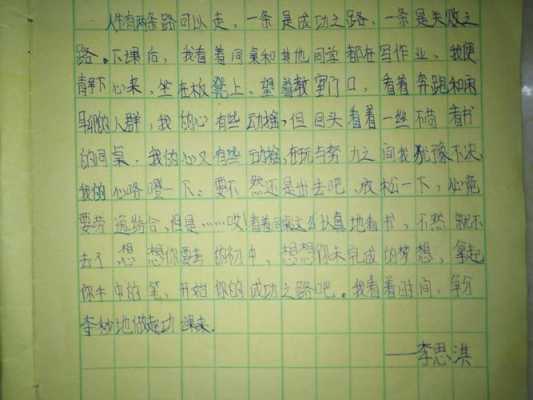 人生有两条路可以走，一条是成功之路，一条是失败之
路。下课后，我看着同桌和其他同学都在写作业，我便
静下心来，坐在板凳上，望着教室门口，看着奔跑和雨
的人群，我的心有些动摇，但回头看着一丝不苟看书
的同桌，我的心又有些动摇，在玩与努力之间我犹豫不决，
我的心咯噔一下：要不然还是出去吧，放松一下，心态
要劳逸结合，但是……哎！看着同桌又认真地看书，不然就不
去了，想想你要考的初中，想想你未完成的梦想，拿起
你手中的笔，开始你的成功之路吧。我看着时间，争分
夺秒地做起功课来。
——李思淇